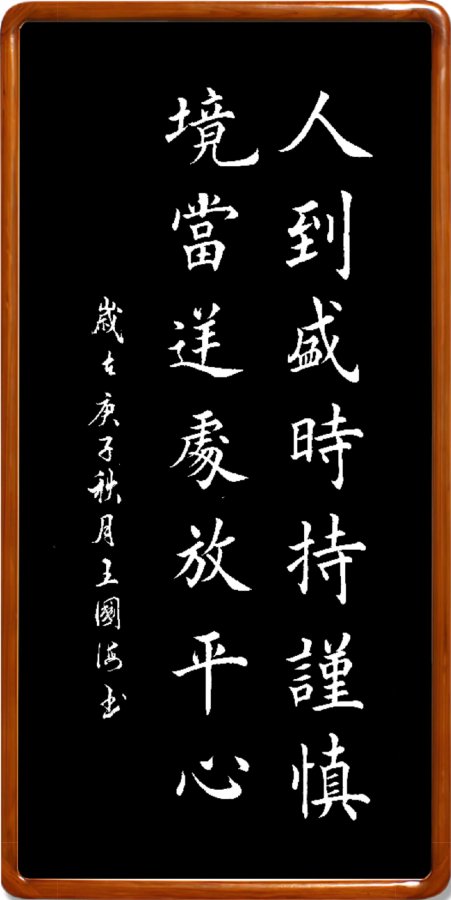 人到盛時持謹慎
境當逆處放平心
歲在庚子秋月王國海書